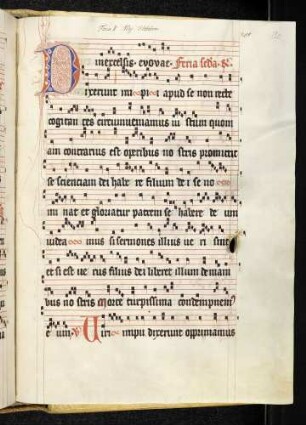 in excelsis. evovae. Feria scda. R.
Dixerunt impii apud se non recte
cogitantes circumveniamus iustum quoni
am contrarius est operibus nostris promittit
se scienciam dei habere filium dei se no
minat et gloriatur patrem se habere deum
videamus si sermones illius veri sint
et si est verus filius dei liberet illum de mani
bus nostris Morte turpissima condempnem
eum. V. Viri impii dixerunt opprimamus